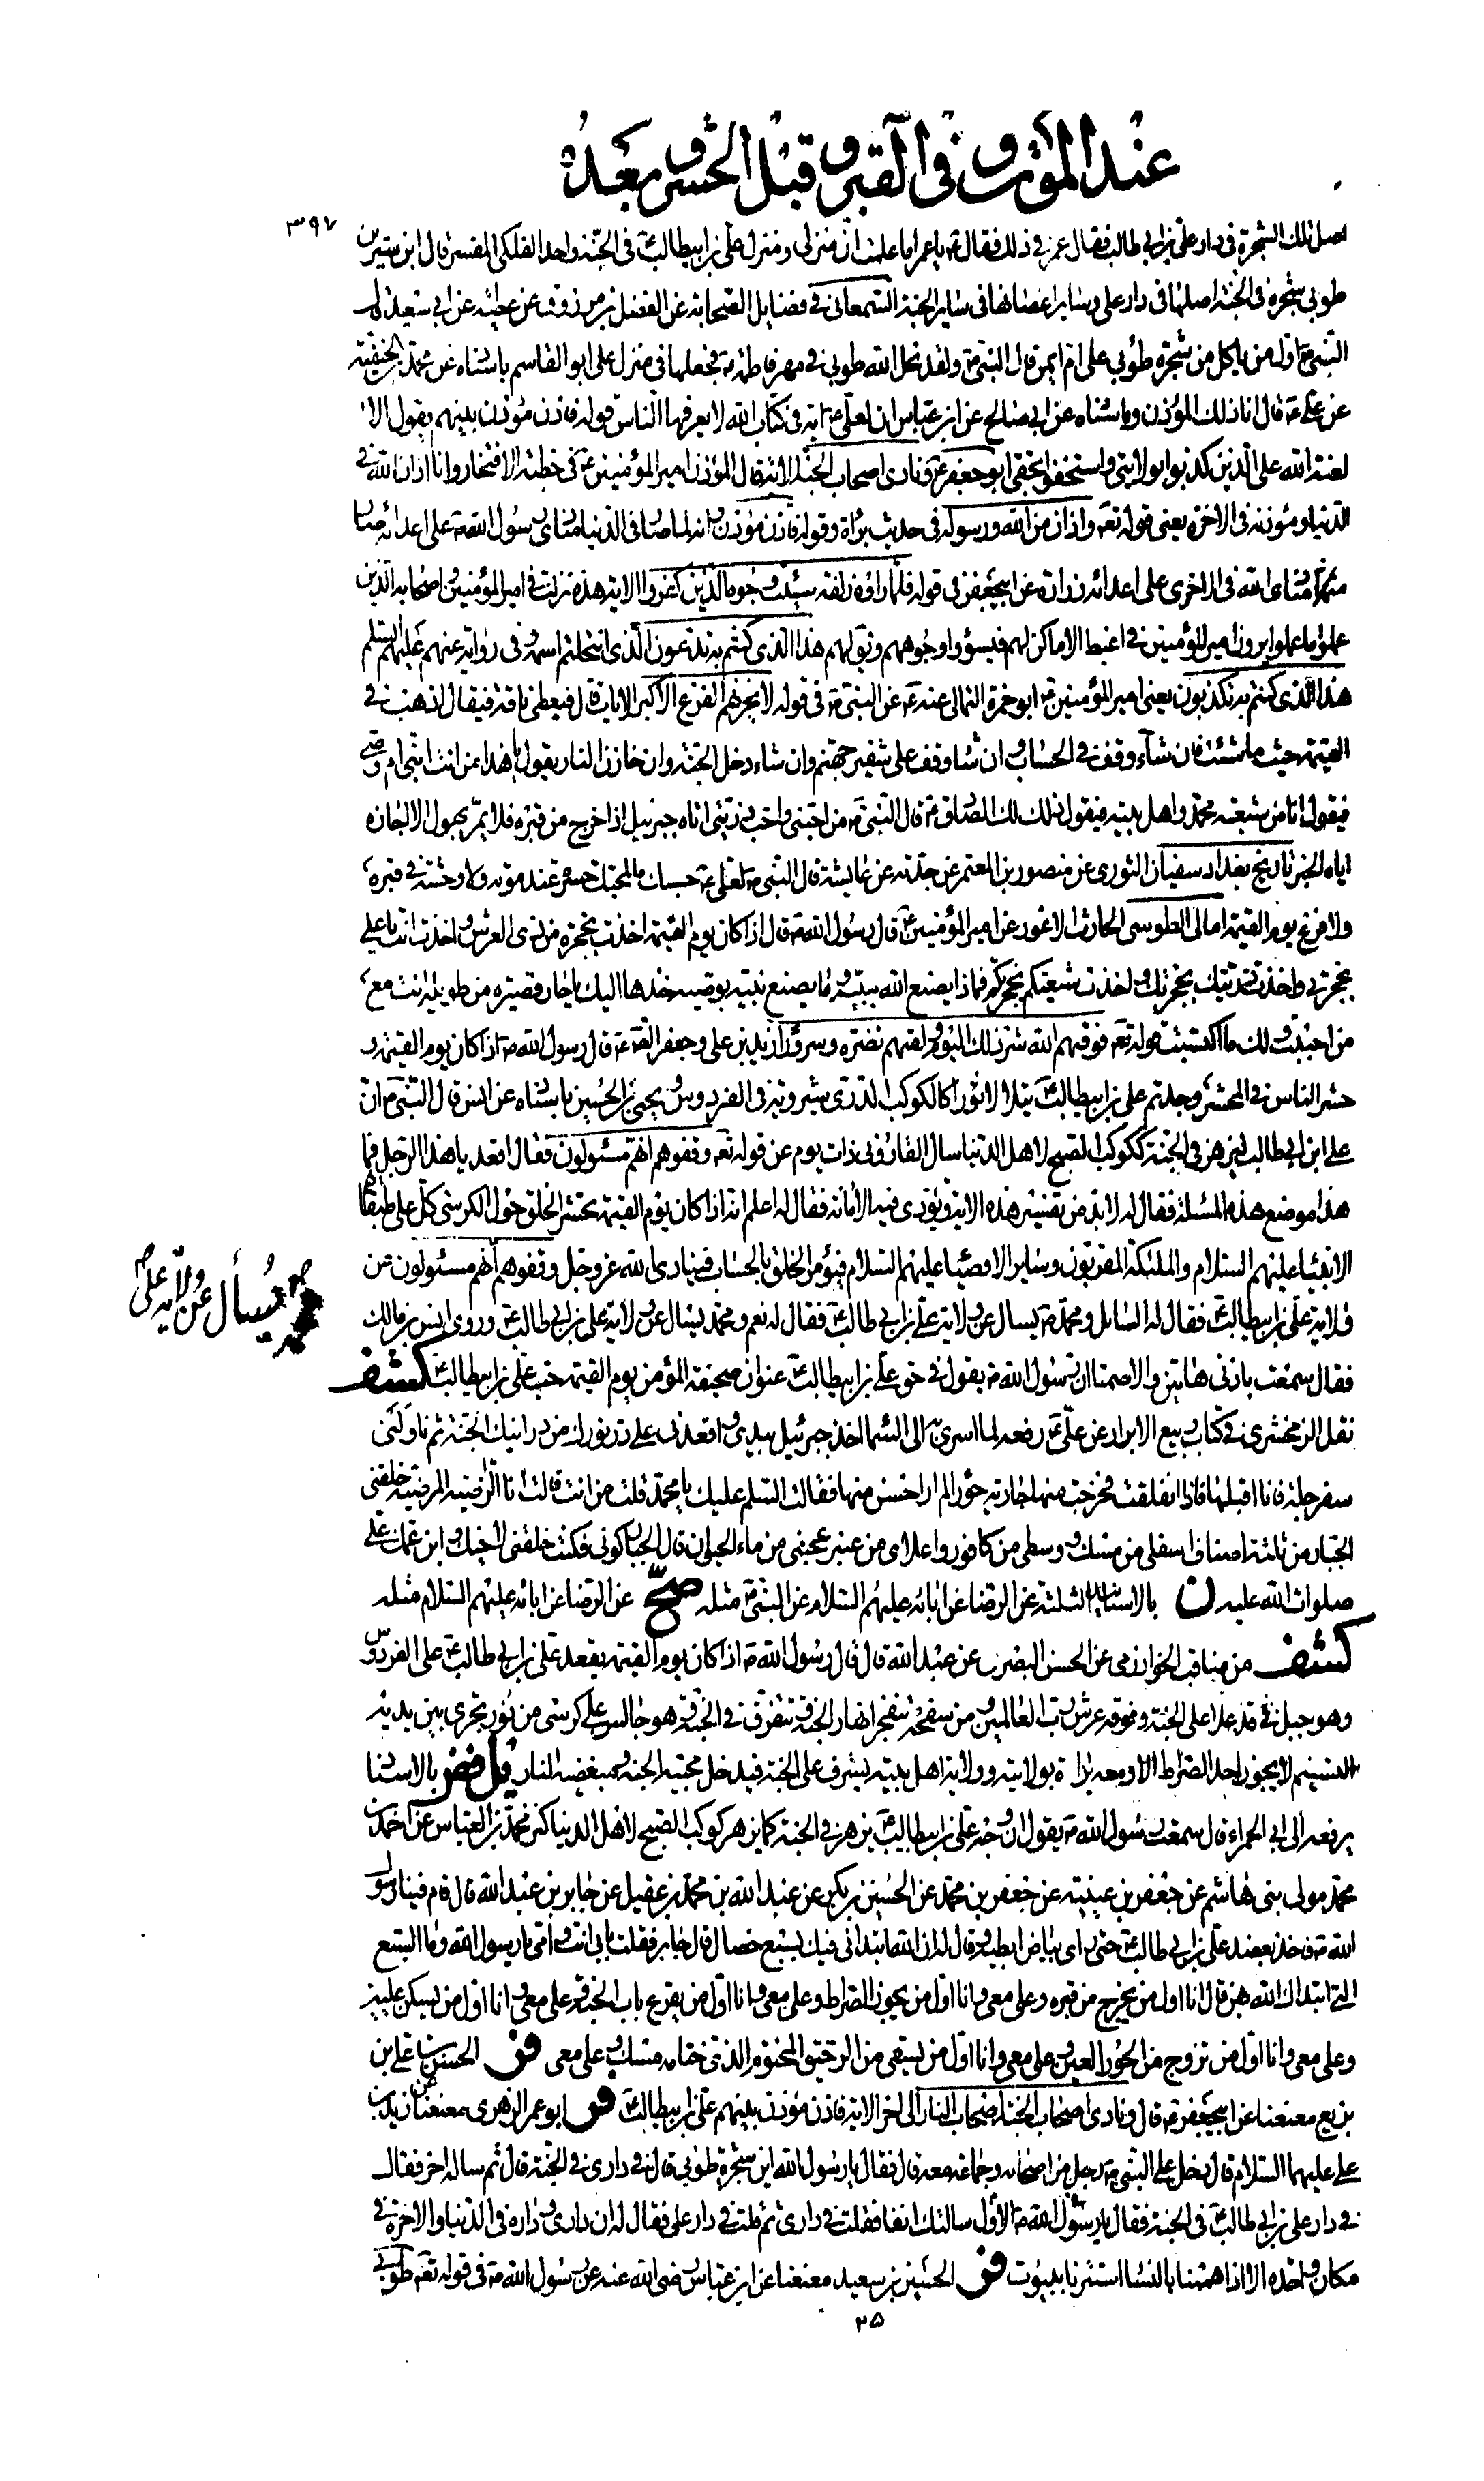 عند الموت و في القبر و قبل الحشر و بعده
۳۹۷
اصل تلك الشجرة في دار علي بن ابي طالب فقال عمر في ذلك فقال ص يا عمر اما علمت ان منزلي و منزل علي بن ابيطالب ع في الجنة واحد الفلكي المفسر قال ابن سيرين
طوبى شجرة في الجنة اصلها في دار علي و ساير اغصانها في ساير الجنة السمعاني في فضايل الصحابة عن الفضل بن مرزوق عن عطية عن ابي سعيد قال
النبي ص اول من ياكل من شجرة طوبى علي ام ايمن قال النبي ص و لقد نحل الله طوبى في مهر فاطمة ع فجعلها في منزل علي ابو القاسم باسناده عن محمد بن الحنفية
عن علي ع قال انا ذلك المؤذن و باسناده عن ابي صالح عن ابن عباس ان لعلي ع اية في كتاب الله لا يعرفها الناس قوله فاذن مؤذن بينهم يقول الا
لعنة الله على الذين كذبوا بولايتي و استخفوا بحقي ابو جعفر ع و نادى اصحاب الجنة الاية قال المؤذن امير المؤمنين ع في خطبة الافتخار و انا اذان الله في
الدنيا و مؤذنه في الاخرة يعني قوله تع و اذان من الله و رسوله في حديث براة و قوله فاذن مؤذن و انه لما صار في الدنيا منادي رسول الله ص على اعدائه صار
منادي الله في الاخرى على اعدائه زرارة عن ابيجعفر ع في قوله فلما راوه زلفة سيئت وجوه الذين كفروا الاية هذه نزلت في امير المؤمنين و اصحابه الذين
عملوا ما عملوا يرون امير المؤمنين في اغبط الاماكن لهم فيسوؤا وجوههم و يق لهم هذا الذي كنتم به تدعون الذي انتحلتم اسمه و في رواية عنهم عليهم السلم
هذا الذي كنتم به تكذبون يعني امير المؤمنين ع ابو حمزة الثمالي عنه ع عن النبي ص في قوله لا يحزنهم الفزع الاكبر الايات قال فيعطى ناقة فيقال اذهب في
القيمة حيث ما شئت فان شاء وقف في الحساب و ان شا وقف على شفير جهنم و ان شاء دخل الجنة و ان خازن النار يقول يا هذا من انت انبي ام وصي
فيقول انا من شيعة محمد و اهل بيته فيقول ذلك لك الصادق ع قال النبي ص من احبني و احب ذريتي اتاه جبرئيل اذا خرج من قبره فلا يمر بهول الا اجازه
اياه الخبر تاريخ بغداد سفيان الثوري عن منصور بن المعتمر عن جدته عن عايشة قال النبي ص لعلي ع حسبك ما لمحبك حسرة عند موته و لا وحشة في قبره
و لا فزع يوم القيمة امالي الطوسي الحارث الاعور عن امير المؤمنين ع قال رسول الله ص قال اذا كان يوم القيمة اخذت بحجزة من ذي العرش و اخذت انت يا علي
بحجزتي و اخذت ذريتك بحجزتك و اخذت شيعتكم بحجزتكم فماذا يصنع الله بنبيه و ما يصنع نبيه بوصيه خذها اليك يا حار قصيرة من طويلة انت مع
من احببت و لك ما اكتسبت قوله تع فوقيهم الله شر ذلك اليوم و لقيهم نضرة و سرورا زيد بن علي و جعفر الص ع قال رسول الله ص اذا كان يوم القيمة و
حشر الناس في المحشر وجدتم علي بن ابيطالب ع يتلالا نورا كالكوكب الدري شيرويه في الفردوس و يحيى بن الحسين باسناده عن انس قال النبي ص ان
علي ابن ابي طالب ليزهر في الجنة ككوكب الصبح لاهل الدنيا سال الفاروقي ذات يوم عن قوله تع و قفوهم انهم مسئولون فقال اقعد يا هذا الرجل فما
هذا موضع هذه المسئلة فقال له لابد من تفسير هذه الاية و تؤدي فيه الامانة فقال له اعلم انه اذا كان يوم القيمة يحشر الخلق حول الكرسي كل على طبقاتهم
الانبيا عليهم السلام و الملئكة المقربون و ساير الاوصيا عليهم السلام فيؤمر الخلق بالحساب فينادي الله عز و جل و قفوهم انهم مسئولون عن
ولاية علي بن ابيطالب ع فقال له السائل و محمد ص يسال عن ولاية علي بن ابي طالب ع فقال له نعم و محمد يسال عن ولاية علي بن ابي طالب ع و روى انس بن مالك
محمد ص يُسأل عن ولاية علي ع
فقال سمعت باذني هاتين و الا صمتا ان رسول الله ص يقول في حق علي بن ابيطالب ع عنوان صحيفة المؤمن يوم القيمة حب علي بن ابيطالب ع كشف
نقل الزمخشري في كتاب ربيع الابرار عن علي ع رفعه لما اسري بي الى السما اخذ جبرئيل بيدي و اقعدني على درنوك من درانيك الجنة ثم ناولني
سفرجلة فانا اقبلها فاذا انفلقت فخرجت منها جارية حورا لم ار احسن منها فقالت السلم عليك يا محمد قلت من انت قالت انا الراضية المرضية خلقني
الجبار من ثلثة اصناف اسفلي من مسك و وسطي من كافور و اعلاي من عنبر عجنني من ماء الحيوان قال الجبار كوني فكنت خلقني لاخيك و ابن عمك علي
صلوات الله عليه ن بالاسانيد الثلثة عن الرضا عن ابائه عليهم السلام عن النبي ص مثله صح عن الرضا عن ابائه عليهم السلام مثله
كشف من مناقب الخوارزمي عن الحسن البصري عن عبد الله قال قال رسول الله ص اذا كان يوم القيمة يقعد علي بن ابي طالب ع على الفردوس
و هو جبل في قد علا على الجنة و فوقه عرش رب العالمين و من سفحه تنفجر انهار الجنة و تتفرق في الجنة و هو جالس على كرسي من نور يجري بين يديه
التسنيم لا يجوز احد الصراط الا و معه براة بولايته و ولاية اهل بيته يشرف على الجنة فيدخل محبيه الجنة و مبغضيه النار يل فض بالاسنا
يرفعه الى ابي الحمراء قال سمعت رسول الله ص يقول ان وجه علي بن ابيطالب ع يزهر في الجنة كما يزهر كوكب الصبح لاهل الدنيا كنز محمد بن العباس عن احمد بن
محمد مولى بني هاشم عن جعفر بن عيينة عن جعفر بن محمد عن الحسين بن بكر عن عبد الله بن محمد بن عقيل عن جابر بن عبد الله قال قام فينا رسول
الله ص فاخذ بعضد علي بن ابي طالب ع حتى راى بياض ابطيه و قال له ان الله ابتداني فيك بسبع خصال قال جابر فقلت بابي انت و امي يا رسول الله و ما السبع
التي ابتداك الله بهن قال انا اول من يخرج من قبره و علي معي و انا اول من يجوز الصراط و علي معي و انا اول من يقرع باب الجنة و علي معي و انا اول من يسكن عليين
و علي معي و انا اول من تزوج من الحور العين و علي معي و انا اول من يسقى من الرحيق المختوم الذي ختامه مسك و علي معي فر الحسن بن علي بن
بزيع معنعنا عن ابيجعفر ع قال و نادى اصحاب الجنة اصحاب النار الى اخر الاية فاذن مؤذن بينهم علي بن ابيطالب ع فر ابو عمر الزهري معنعنا عن زيد بن
علي عليهما السلام قال دخل على النبي ص رجل من اصحابه و جماعة معه قال فقال يا رسول الله اين شجرة طوبى قال في داري في الجنة قال ثم ساله اخر فقال
في دار علي بن ابي طالب ع في الجنة فقال يا رسول الله ص الاول سالتك انفا فقلت في داري ثم قلت في دار علي فقال له ان داري و داره في الدنيا و الاخرة في
مكان واحده الا اذا هممنا بالنسا استترنا بالبيوت فر الحسين بن سعيد معنعنا عن ابن عباس رضي الله عنه عن رسول الله ص في قوله تع طوبى
۲۵